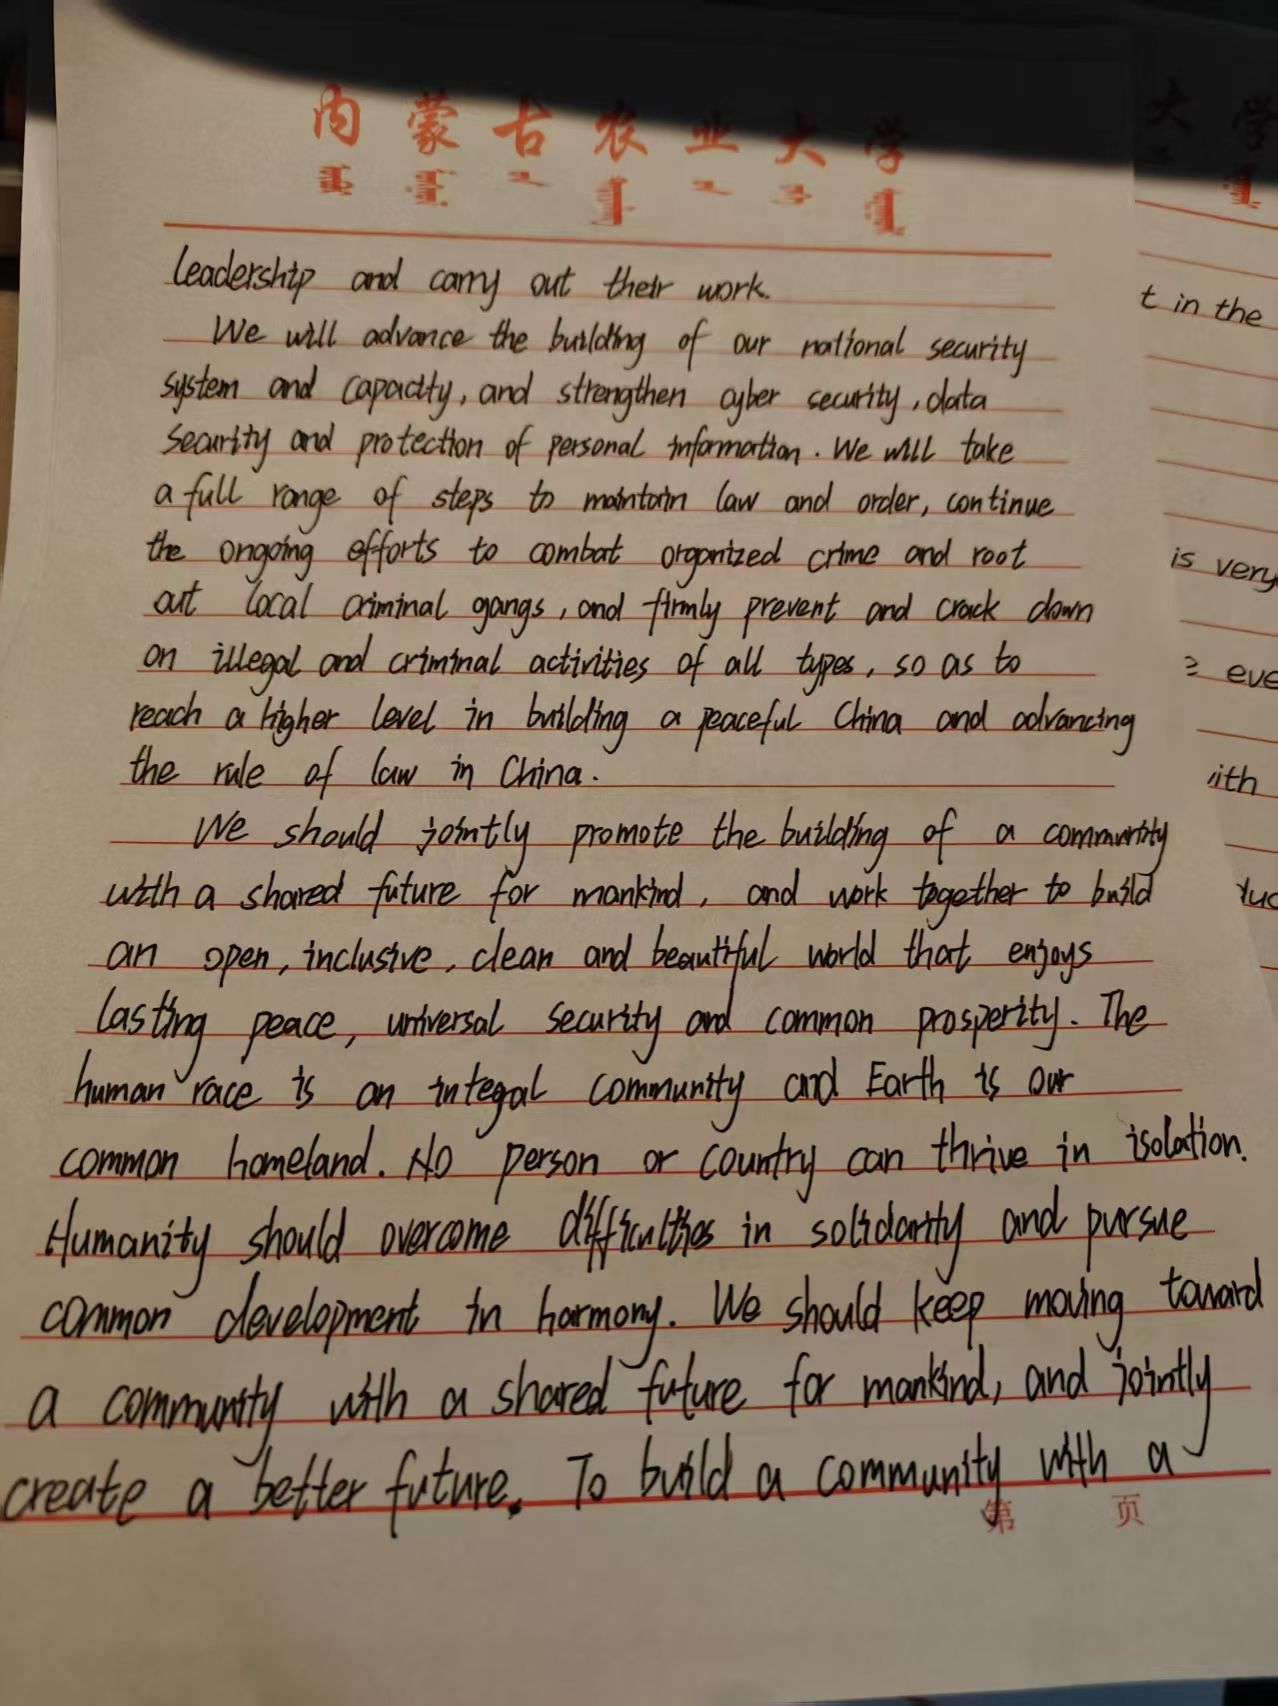 内蒙古农业大学
leadership and carry out their work.
We will advance the building of our national security
system and capacity, and strengthen cyber security, data
security and protection of personal information. We will take
a full range of steps to maintain law and order, continue
the ongoing efforts to combat organized crime and root
out local criminal gangs, and firmly prevent and crack down
on illegal and criminal activities of all types, so as to
reach a higher level in building a peaceful China and advancing
the rule of law in China.
We should jointly promote the building of a community
with a shared future for mankind, and work together to build
an open, inclusive, clean and beautiful world that enjoys
lasting peace, universal security and common prosperity. The
human race is an integal community and Earth is our
common homeland. No person or country can thrive in isolation.
Humanity should overcome difficulties in solidarity and pursue
common development in harmony. We should keep moving toward
a community with a shared future for mankind, and jointly
create a better future. To build a community with a
第 页
大学
t in the
is very
eve
ith